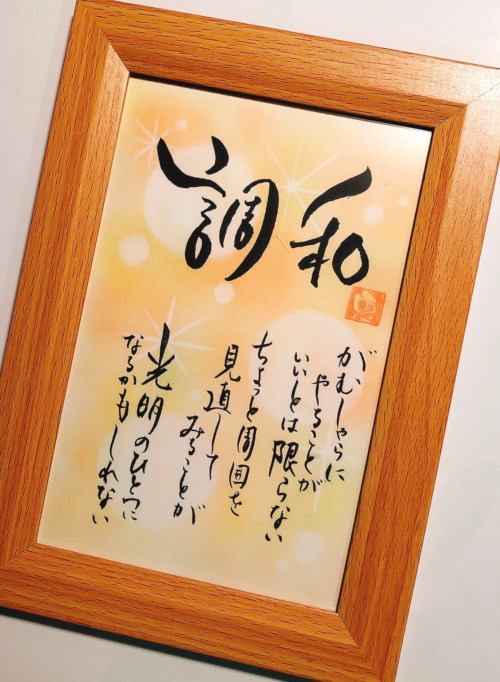 調和
がむしゃらに
やることが
いいとは限らない
ちょっと周囲を
見直して
みることが
光明のひとつに
なるかもしれない